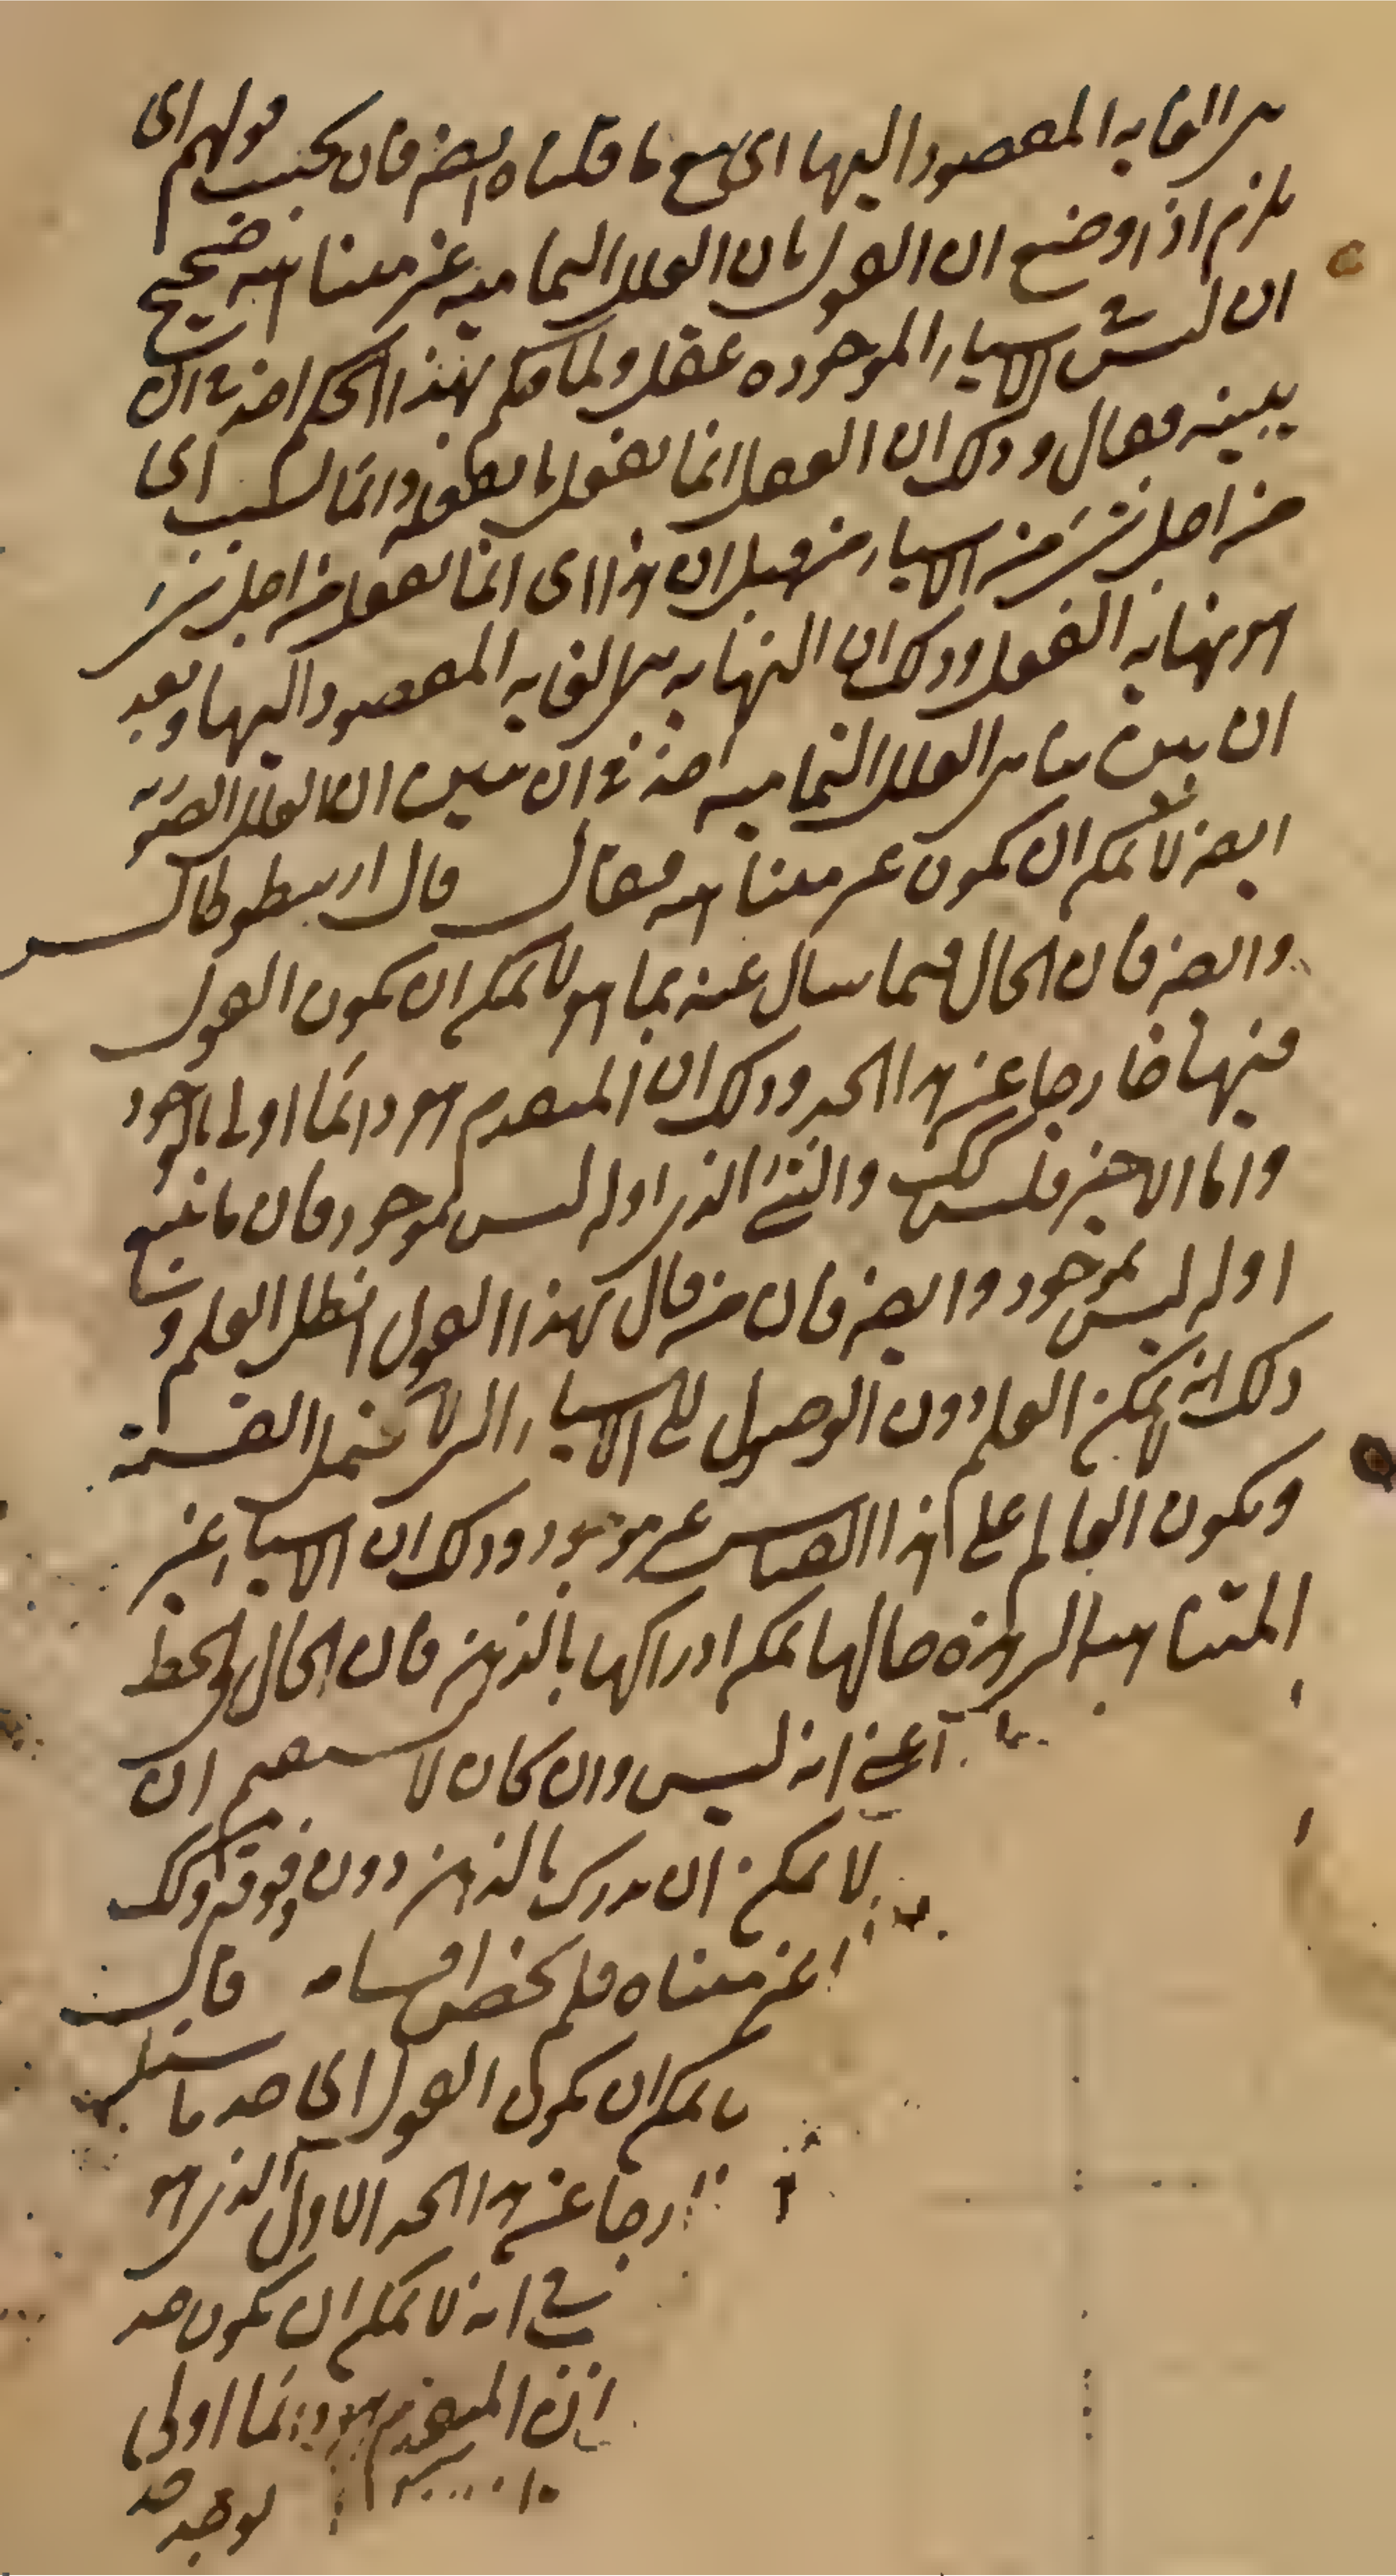 هى الغايه المقصود اليها اى مع ما قلناه ايضا فان بحسب قولهم اى
يلزم اذا وضع ان القول بان العلل التماميه غير متناهيه صحيح
ان ليس فى الاشياء الموجوده عقل ولما حكم بهذا الحكم اخذ فى ان
يبينه فقال وذلك ان العقل انما يفعل ما يفعله دائما لسبب اى
من اجل شىء من الاشياء من قبل ان هذا اى انما يفعل من اجل شىء
هو نهايه الفعل وذلك ان النهايه هى الغايه المقصود اليها وبعد
ان بين تناهى العلل التماميه اخذ فى ان يبين ان العلل الصوريه
ايضا لا يمكن ان تكون غير متناهيه فقال قال ارسطوطالس
وايضا فان الحال فيما سال عنه بما هو لا يمكن ان يكون القول
فيها خارجا عن هذا الحد وذلك ان المتقدم هو دائما اولى بالوجود
واما الاخير فليس كذلك والشئ الذى اوله ليس بموجود فان ما يتبع
اوله ليس بموجود وايضا فان من قال بهذا القول ابطل العلم و
ذلك انه لا يمكن العلم دون الوصول الى الاشياء التى لا تحتمل القسمة
ويكون العالم على هذا القياس غير موجود وذلك ان الاشياء غير
المتناهيه التى هذه حالها يمكن ادراكها بالذهن فان الحال فى الخط
اعنى انه ليس وان كان لا ان
لا يمكن ان يدرك بالذهن دون وقوفه ولذلك
غير متناه فلم يخص اقسامه قال
يمكن ان يكون القول اى حد ما
رجا عن هذا الحد الاول الذى هو
فى انه لا يمكن ان يكون حد
المتقدم هو دائما اولى
يوجد حد